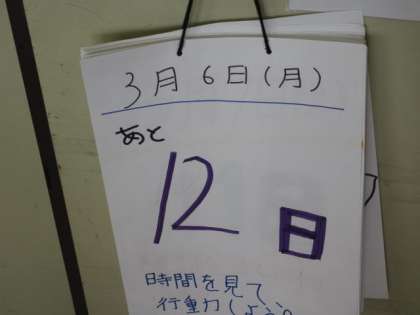 3月6日(月)
あと
12日
時間を見て
行動しよう。